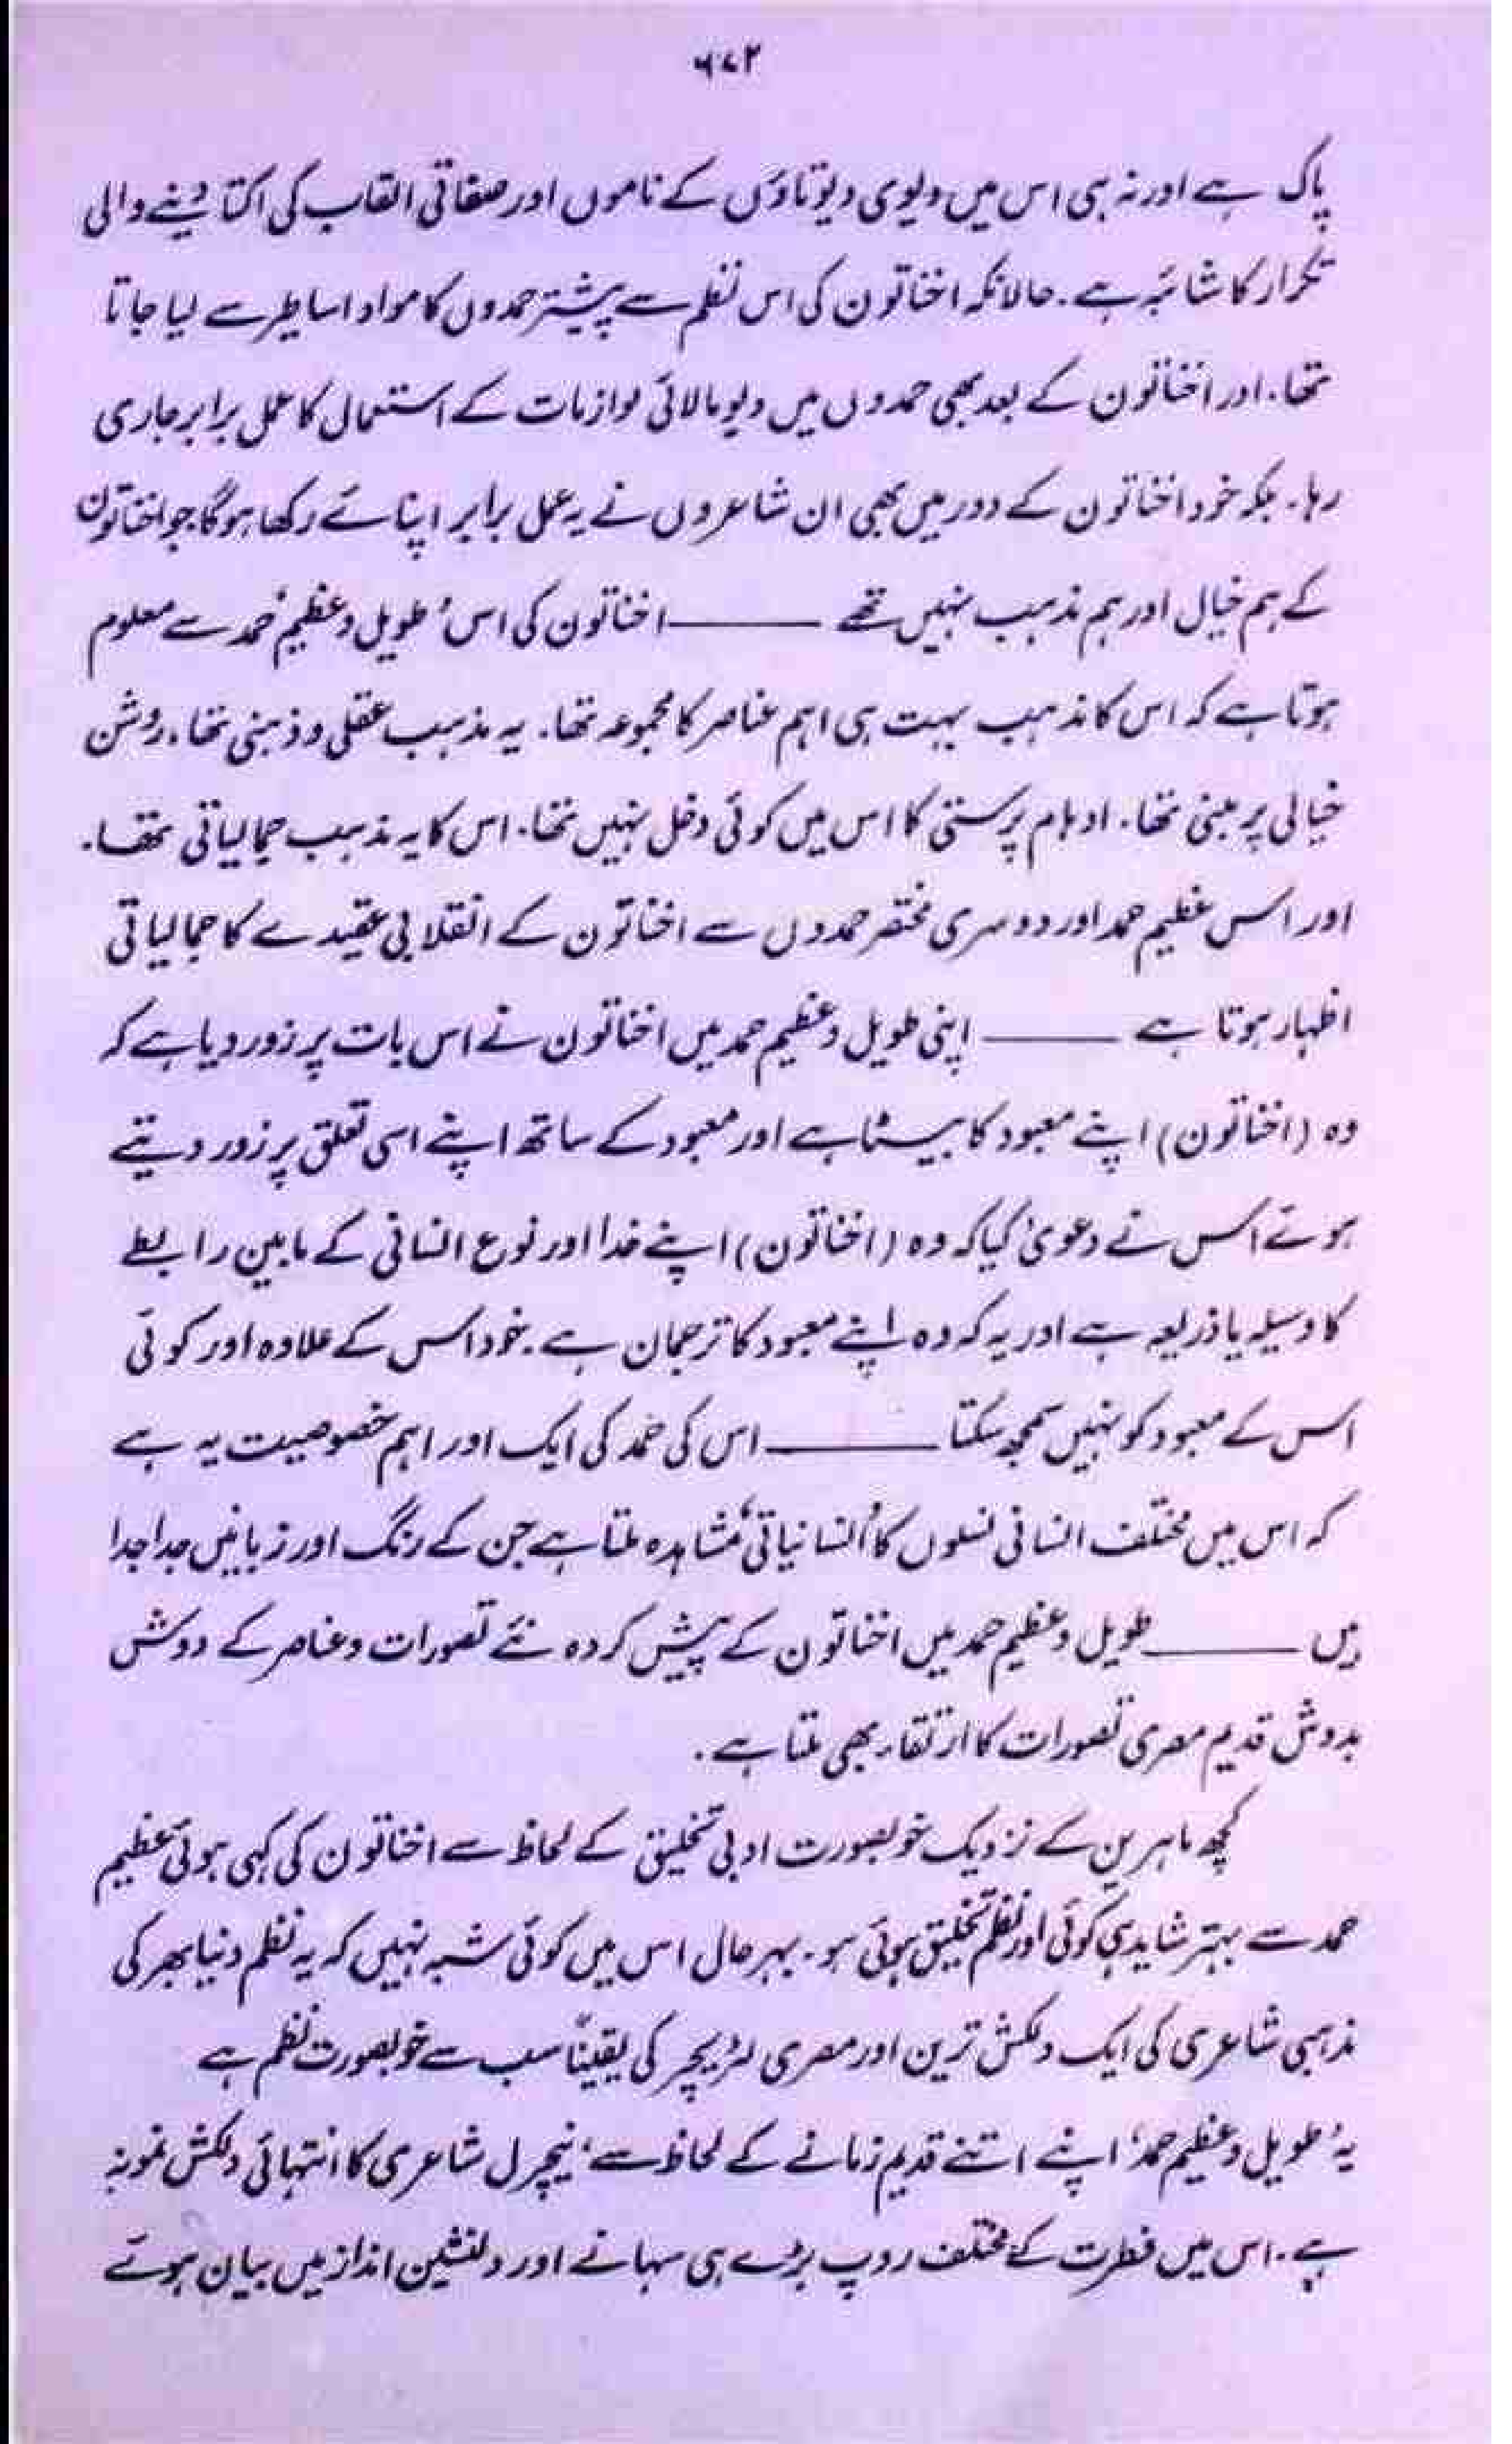 ۶۷۲
پاک ہے اور نہ ہی اس میں دیوی دیوتاؤں کے ناموں اور صفاتی القاب کی اکتا دینے والی
تکرار کا شائبہ ہے۔ حالانکہ اخناتون کی اس نظم سے پیشتر حمدوں کا مواد اساطیر سے لیا جاتا
تھا۔ اور اخناتون کے بعد بھی حمدوں میں دیومالائی لوازمات کے استعمال کا عمل برابر جاری
رہا۔ بلکہ خود اخناتون کے دور میں بھی ان شاعروں نے یہ عمل برابر اپنائے رکھا ہوگا جو اخناتون
کے ہم خیال اور ہم مذہب نہیں تھے ——— اخناتون کی اس ’طویل و عظیم حمد‘ سے معلوم
ہوتا ہے کہ اس کا مذہب بہت ہی اہم عناصر کا مجموعہ تھا۔ یہ مذہب عقلی و ذہنی تھا، روشن
خیالی پر مبنی تھا۔ اوہام پرستی کا اس میں کوئی دخل نہیں تھا۔ اس کا یہ مذہب جمالیاتی تھا۔
اور اس عظیم حمد اور دوسری مختصر حمدوں سے اخناتون کے انقلابی عقیدے کا جمالیاتی
اظہار ہوتا ہے ——— اپنی طویل و عظیم حمد میں اخناتون نے اس بات پر زور دیا ہے کہ
وہ (اخناتون) اپنے معبود کا بیٹا ہے اور معبود کے ساتھ اپنے اسی تعلق پر زور دیتے
ہوئے اس نے دعویٰ کیا کہ وہ (اخناتون) اپنے خدا اور نوع انسانی کے مابین رابطے
کا وسیلہ یا ذریعہ ہے اور یہ کہ وہ اپنے معبود کا ترجمان ہے۔ خود اس کے علاوہ اور کوئی
اس کے معبود کو نہیں سمجھ سکتا ——— اس کی حمد کی ایک اور اہم خصوصیت یہ ہے
کہ اس میں مختلف انسانی نسلوں کا ’انسانیاتی‘ مشاہدہ ملتا ہے جن کے رنگ اور زبانیں جدا جدا
ہیں ——— طویل و عظیم حمد میں اخناتون کے پیش کردہ نئے تصورات و عناصر کے دوش
بدوش قدیم مصری تصورات کا ارتقاء بھی ملتا ہے۔
کچھ ماہرین کے نزدیک خوبصورت ادبی تخلیق کے لحاظ سے اخناتون کی کہی ہوئی عظیم
حمد سے بہتر شاید ہی کوئی اور نظم تخلیق ہوئی ہو۔ بہرحال اس میں کوئی شبہ نہیں کہ یہ نظم دنیا بھر کی
مذہبی شاعری کی ایک دلکش ترین اور مصری لٹریچر کی یقیناً سب سے خوبصورت نظم ہے
یہ ’طویل و عظیم حمد‘ اپنے اتنے قدیم زمانے کے لحاظ سے ’نیچرل شاعری کا انتہائی دلکش نمونہ
ہے۔ اس میں فطرت کے مختلف روپ بڑے ہی سہانے اور دلنشین انداز میں بیان ہوئے